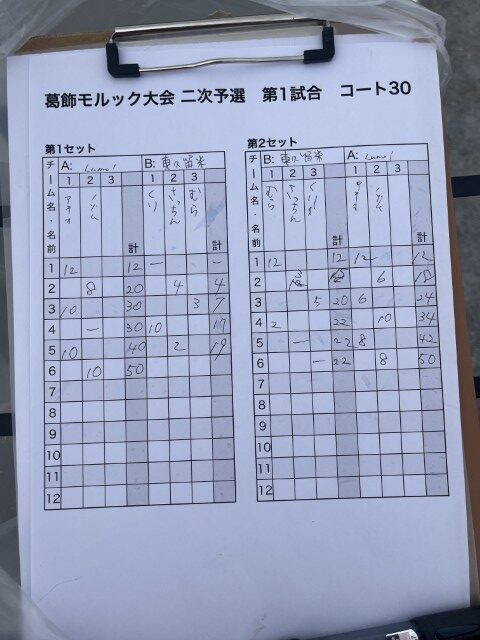 葛飾モルック大会 二次予選 第1試合 コート30
第1セット
チーム名・名前 A: Lumo! B: 東久留米
1 2 3 計 1 2 3 計
くり さっちん むら
1 12 12 — —
2 8 20 4 4
3 10 30 3 7
4 — 30 10 17
5 10 40 2 19
6 10 50
7
8
9
10
11
12
第2セット
チーム名・名前 B: 東久留米 A: Lumo!
1 2 3 計 1 2 3 計
むら さっちん くり
1 12 12 12 12
2 3 15 6 18
3 5 20 6 24
4 2 22 10 34
5 — 22 8 42
6 — 22 8 50
7
8
9
10
11
12